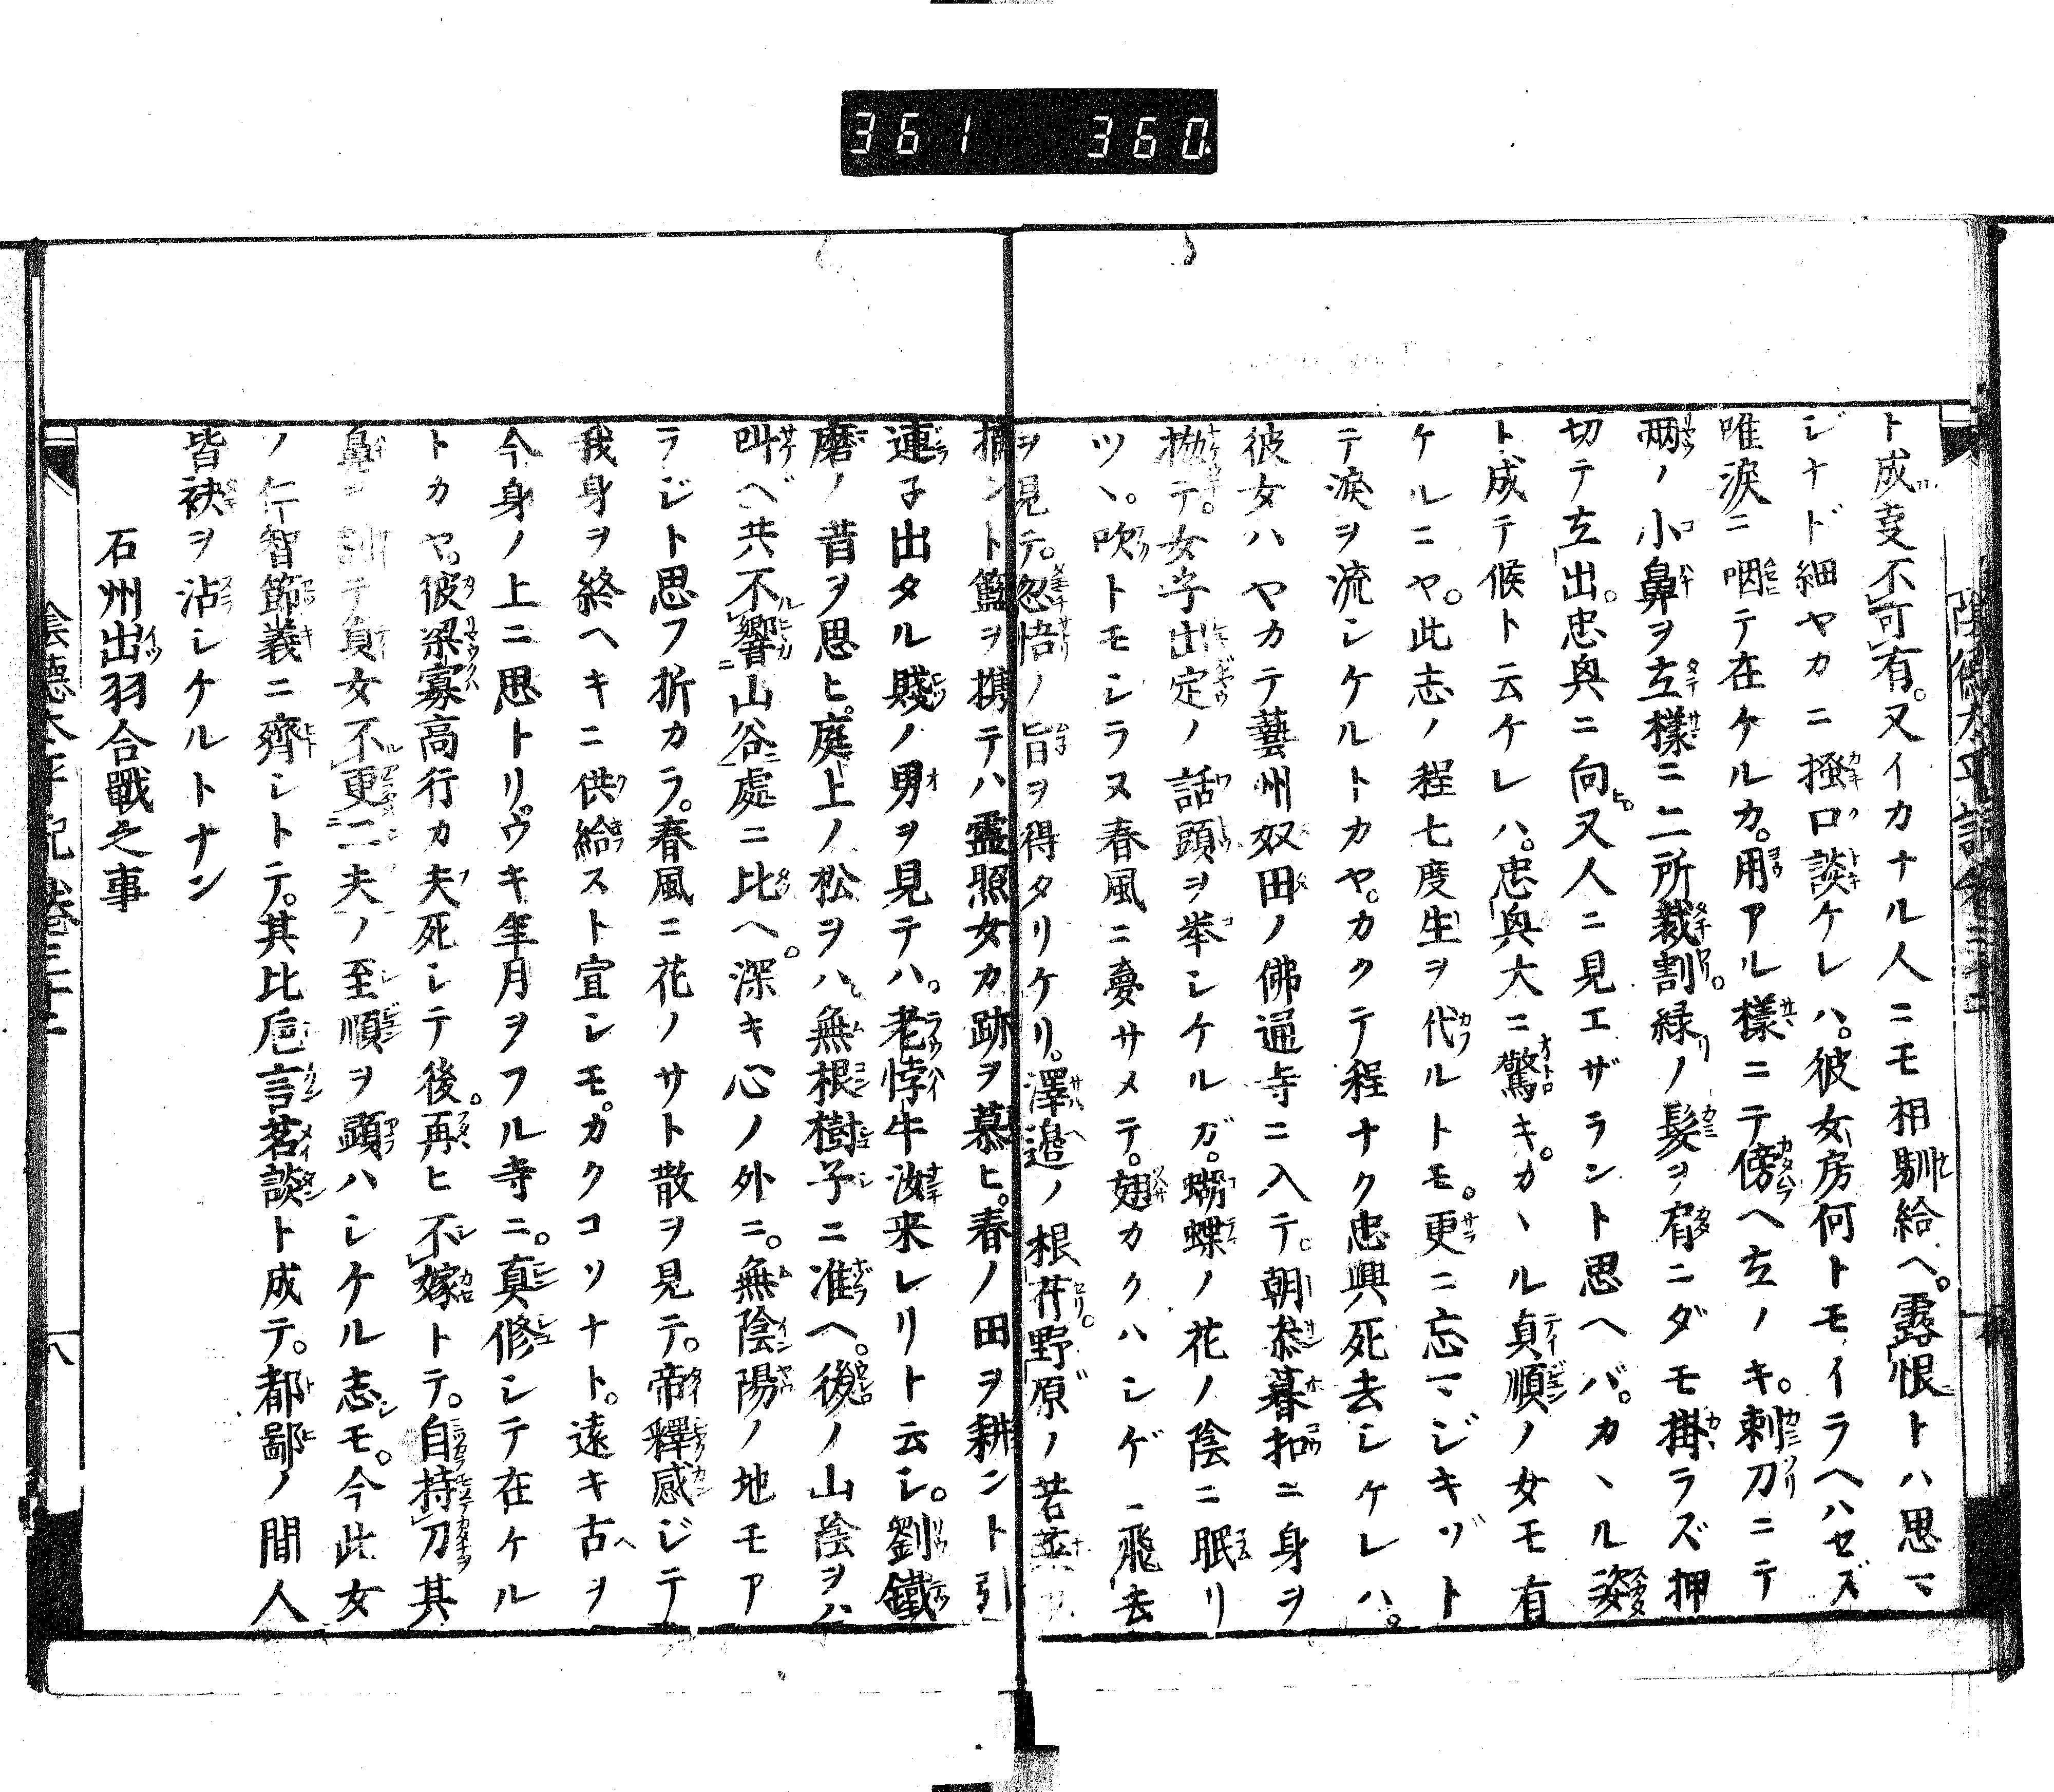 361 360
ト成叓不可有。又イカナル人ニモ相馴給ヘ。露恨トハ思マ
ジナド細ヤカニ掻口談ケレハ。彼女房何トモイラヘハセズ
唯涙ニ咽テ在ケルカ。用アル様ニテ傍ヘ立ノキ。剃刀ニテ
両ノ小鼻ヲ立様ニ二所裁割緑ノ髪ヲ肩ニダモ掛ラズ押
切テ立出。忠與ニ向又人ニ見エザラント思ヘバ。カヽル姿
ト成テ候ト云ケレハ。忠與大ニ驚キ。カヽル貞順ノ女モ有
ケルニヤ。此志ノ程七度生ヲ代ルトモ。更ニ忘マジキゾト
テ涙ヲ流シケルトカヤ。カクテ程ナク忠興死去シケレハ。
彼女ハヤカテ藝州奴田ノ佛通寺ニ入テ。朝恭暮扣ニ身ヲ
拗テ。女子出定ノ話頭ヲ挙シケルガ。蝴蝶ノ花ノ陰ニ眠リ
ツヽ。吹トモシラヌ春風ニ夢サメテ。翅カクハシゲニ飛去
ヲ見テ。忽悟ノ旨ヲ得タリケリ。澤邉ノ根芹。野原ノ若菜
摘ント籃ヲ携テハ霊照女カ跡ヲ慕ヒ。春ノ田ヲ耕ント引
連子出タル賤ノ男ヲ見テハ。老悖牛汝来レリト云シ。劉鐵
磨ノ昔ヲ思ヒ。庭上ノ松ヲハ無根樹子ニ准ヘ。後ノ山陰ヲハ
叫ベ共不響山谷處ニ比ヘ。深キ心ノ外ニ。無陰陽ノ地モア
ラジト思フ折カラ。春風ニ花ノサト散ヲ見テ。帝釋感ジテ
我身ヲ終ヘキニ供給スト宣シモ。カクコソナト。遠キ古ヲ
今身ノ上ニ思トリ。ウキ年月ヲフル寺ニ。真修シテ在ケル
トカヤ。彼梁寡高行カ夫死シテ後。再ヒ不嫁トテ。自持刀其
鼻ヲ テ貞女不更二夫ノ至順ヲ顕ハシケル志モ。今此女
ノ仁智節義ニ齊シトテ。其比巵言茗談ト成テ。都鄙ノ間人
皆袂ヲ沾シケルトナン
石州出羽合戰之事
陰徳太平記巻三十二 八